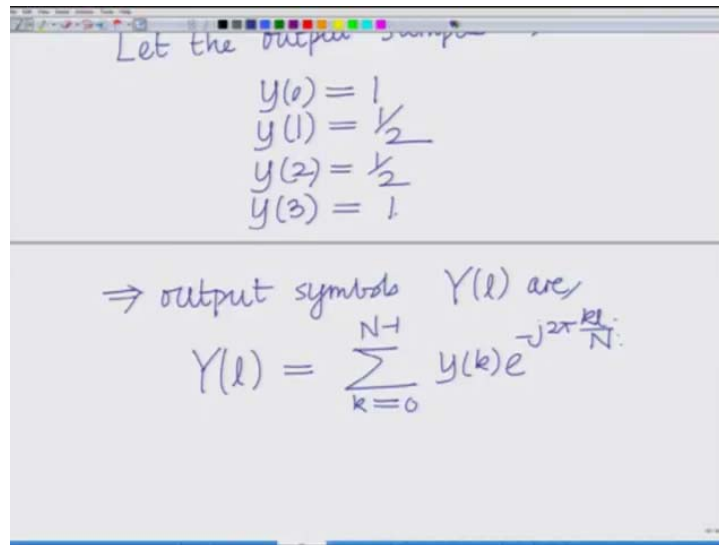 Let the output
y(0) = 1
y(1) = 1/2
y(2) = 1/2
y(3) = 1.
⇒ output symbols Y(l) are,
Y(l) = ∑_{k=0}^{N-1} y(k) e^{-j2π kl/N}.